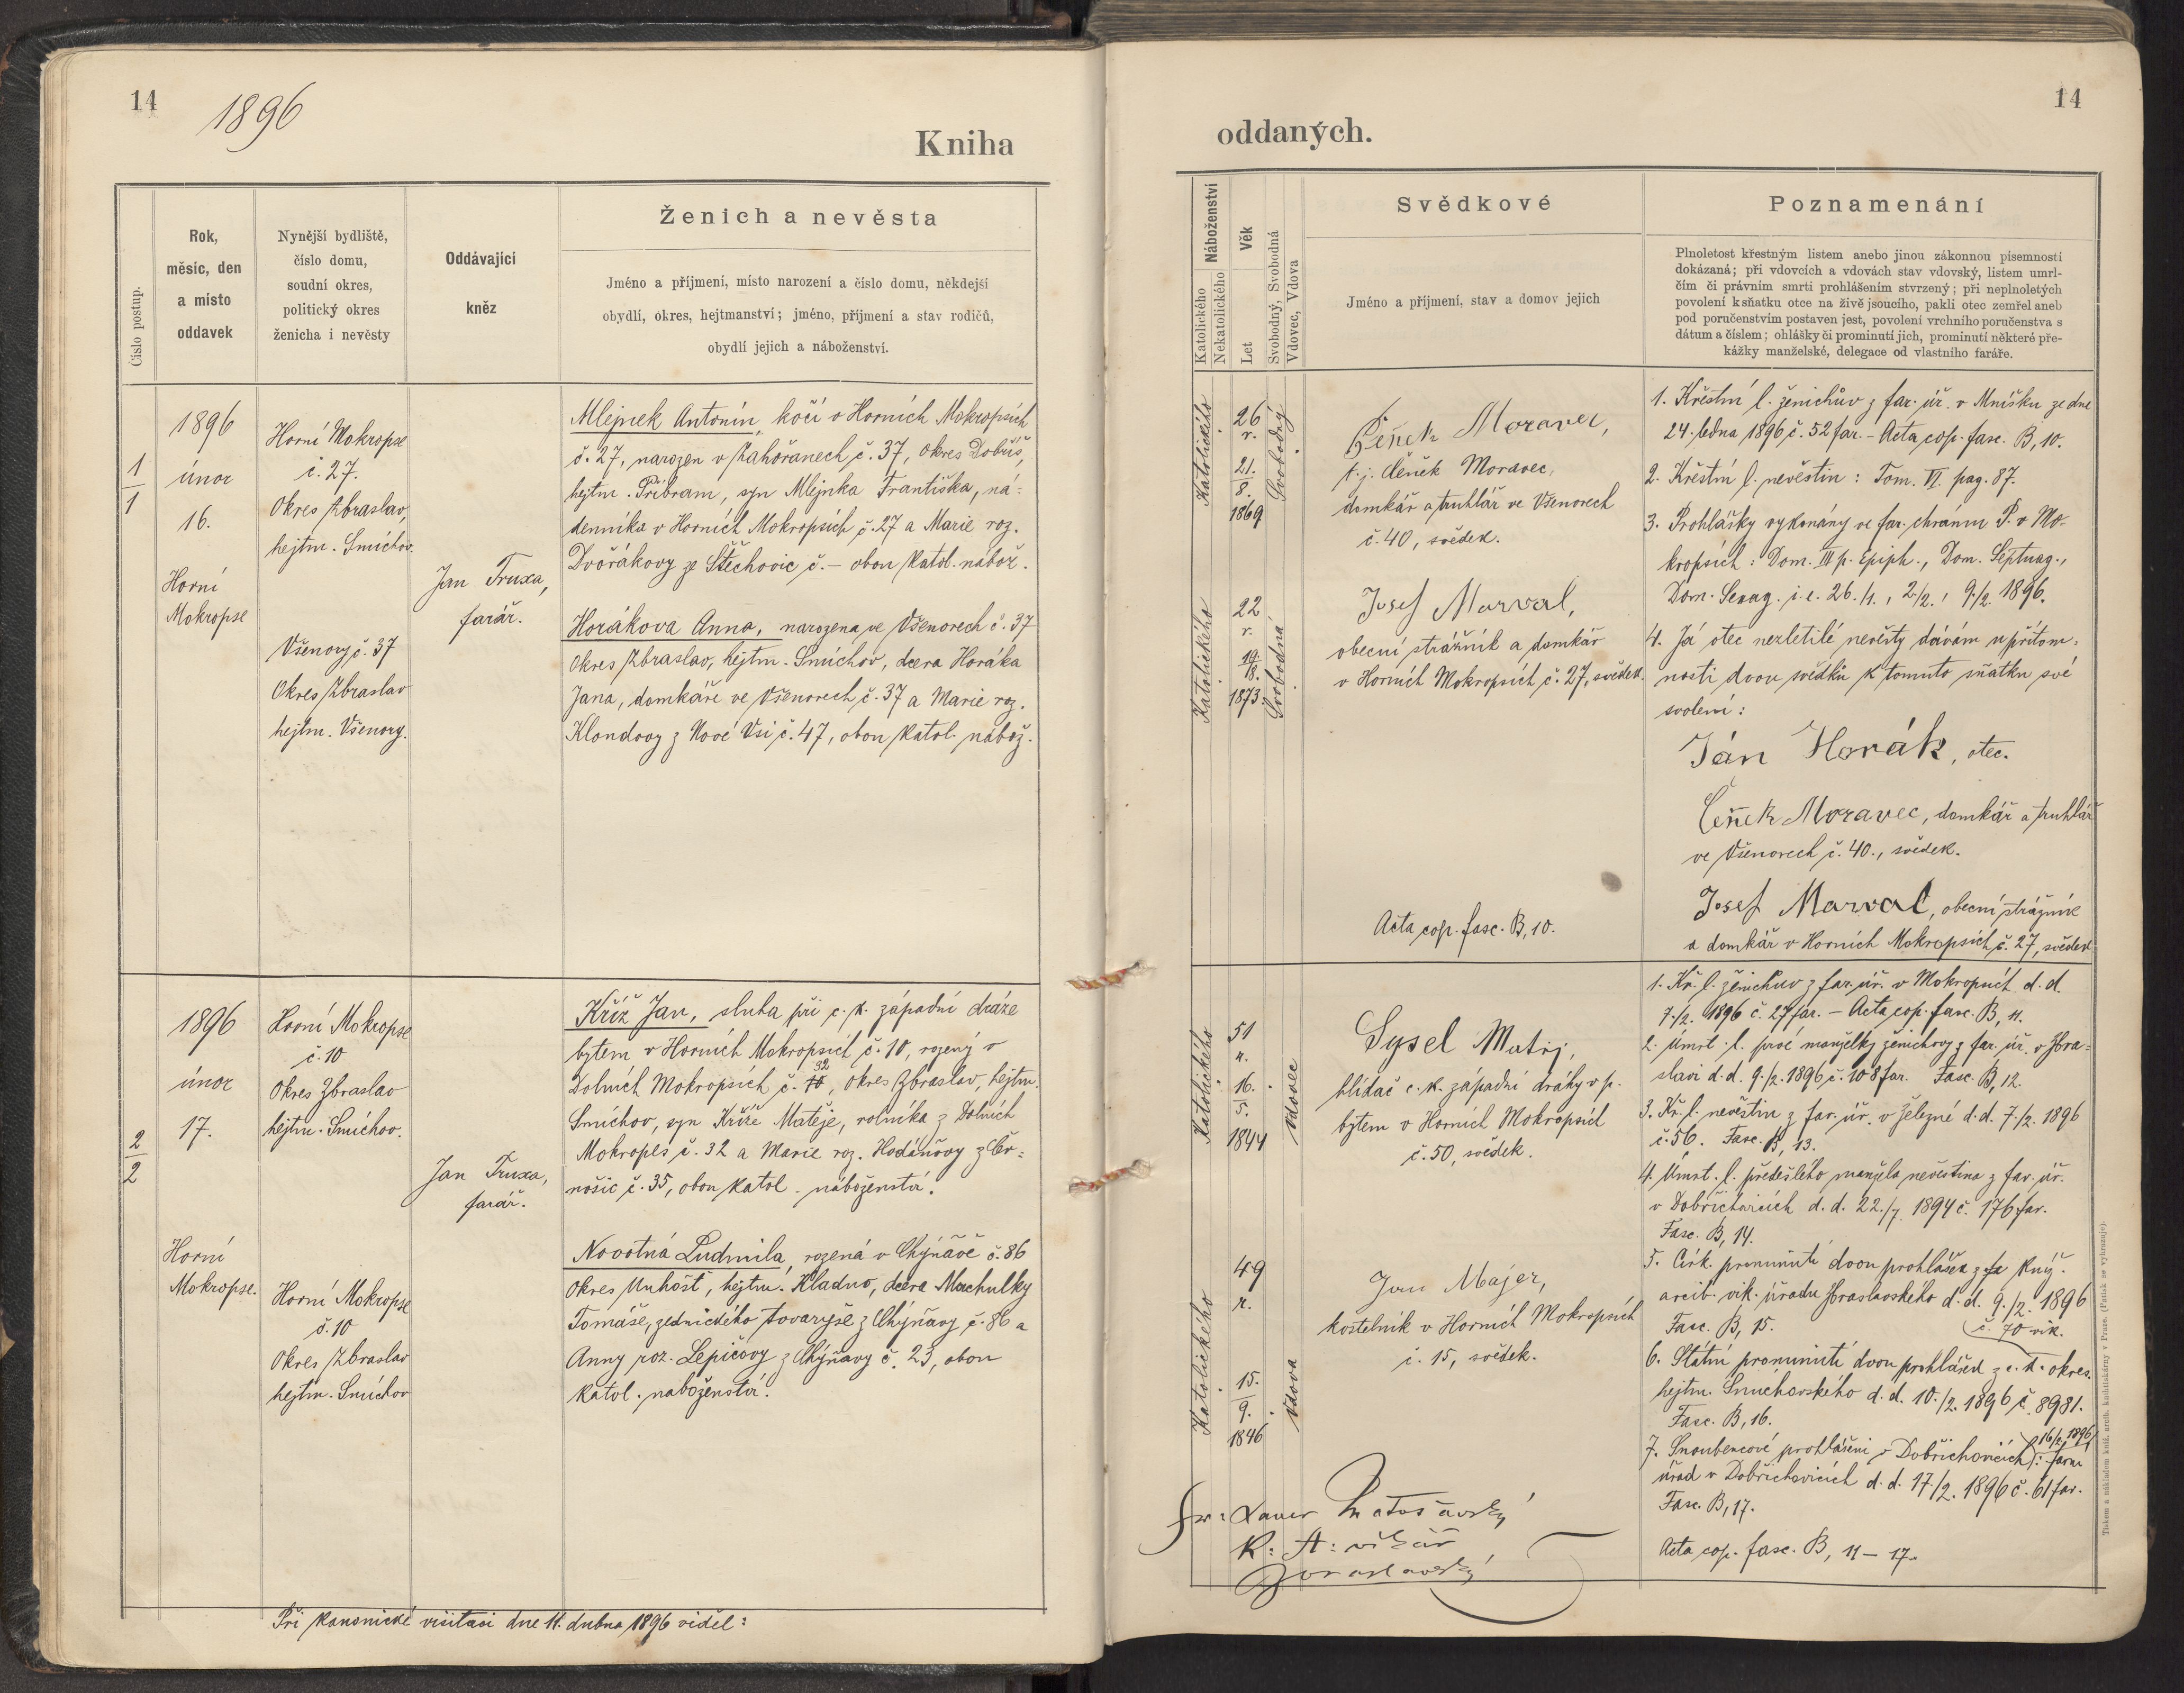 14
1896
Kniha
Číslo postup.
Rok,
měsíc, den
a místo
oddavek
Nynější bydliště,
číslo domu,
soudní okres,
politický okres
ženicha i nevěsty
Oddávající
kněz
Ženich a nevěsta
Jméno a příjmení, místo narození a číslo domu, někdejší
obydlí, okres, hejtmanství; jméno, příjmení a stav rodičů,
obydlí jejich a náboženství.
1
1
1896
únor
16.
Horní
Mokropse
Horní Mokropse
č. 27.
Okres Zbraslav,
hejtm. Smíchov.
Všenory č. 37
Okres Zbraslav
hejtm. Všenory.
Jan Truxa,
farář.
Mlejnek Antonín, kočí v Horních Mokropsích
č. 27, narozen v Zahořanech č. 37, okres Dobříš,
hejtm. Příbram, syn Mlejnka Františka, ná-
denníka v Horních Mokropsích č. 27 a Marie roz.
Dvořákovy ze Štěchovic č. – obou katol. nábož.
Horákova Anna, narozena ve Všenorech č. 37
okres Zbraslav, hejtm. Smíchov, dcera Horáka
Jana, domkáře ve Všenorech č. 37 a Marie roz.
Klondovy z Nové Vsi č. 47, obou katol. nábož.
2
2
1896
únor
17.
Horní
Mokropse.
Horní Mokropse
č. 10
Okres Zbraslav
hejtm. Smíchov.
Horní Mokropse
č. 10
Okres Zbraslav
hejtm. Smíchov
Jan Truxa,
farář.
Kříž Jan, sluha při c. k. západní dráze
bytem v Horních Mokropsích č. 10, rozený v
32
Dolních Mokropsích č. 10, okres Zbraslav, hejtm.
Smíchov, syn Kříže Matěje, rolníka z Dolních
Mokropes č. 32 a Marie roz. Hodinovy z Čer-
nošic č. 35, obou katol. náboženství.
Novotná Ludmila, rozená v Chýňavě č. 86
okres Unhošť, hejtm. Kladno, dcera Machulky
Tomáše, zednického tovaryše z Chýňavy č. 86 a
Anny roz. Lepičovy z Chýňavy č. 23, obou
katol. náboženství.
Při kanonické visitaci dne 11. dubna 1896 viděl:
14
oddaných.
Náboženství
Katolického
Nekatolického
Věk
Let
Svobodný, Svobodná
Vdovec, Vdova
Svědkové
Jméno a příjmení, stav a domov jejich
Poznamenání
Plnoletost křestným listem anebo jinou zákonnou písemností
dokázaná; při vdovcích a vdovách stav vdovský, listem umrl-
čím či právním smrti prohlášením stvrzený; při neplnoletých
povolení k sňatku otce na živě jsoucího, pakli otec zemřel aneb
pod poručenstvím postaven jest, povolení vrchního poručenstva s
dátum a číslem; ohlášky či prominutí jich, prominutí některé pře-
kážky manželské, delegace od vlastního faráře.
Katolického
26
r.
21.
8.
1869
Svobodný
Katolického
22
r.
19.
8.
1873.
Svobodná
Čeněk Moravec,
t. j. Čeněk Moravec,
domkář a truhlář ve Všenorech
č. 40, svědek.
Josef Marval,
obecní strážník a domkář
v Horních Mokropsích č. 27, svědek.
Acta cop. fasc. B, 10.
1. Křestní l. ženichův z far. úř. v Mníšku ze dne
24. ledna 1896 č. 52 far. – Acta cop. fasc. B, 10.
2. Křestní l. nevěstin: Tom. VI. pag. 87.
3. Prohlášky vykonány ve far. chrámu P. v Mo-
kropsích: Dom. III p. Epiph., Dom. Septuag.,
Dom. Sexag. i. e. 26./1., 2./2., 9./2. 1896.
4. Já otec nezletilé nevěsty dávám u přítom-
nosti dvou svědků k tomuto sňatku své
svolení:
Ján Horák, otec.
Čeněk Moravec, domkář a truhlář
ve Všenorech č. 40., svědek.
Josef Marval, obecní strážník
a domkář v Horních Mokropsích č. 27, svědek
Katolického
51
r.
16.
5.
1844
Vdovec
Katolického
49
r.
15.
9.
1846
Vdova
Sysel Matěj,
hlídač c. k. západní dráhy v p.
bytem v Horních Mokropsích
č. 50, svědek.
Jan Majer,
kostelník v Horních Mokropsích
č. 15, svědek.
1. Kř. l. ženichův z far. úř. v Mokropsích d. d.
7./2. 1896 č. 27 far. – Acta cop. fasc. B, 11.
2. Úmrt. l. prvé manželky ženichovy z far. úř. v Zbra-
slavi d. d. 9./2. 1896 č. 108 far. Fasc. B, 12.
3. Kř. l. nevěstin z far. úř. v Železné d. d. 7./2. 1896
č. 56. Fasc. B, 13.
4. Úmrt. l. předešlého manžela nevěstina z far. úř.
v Dobřichovicích d. d. 22./7. 1894 č. 176 far.
Fasc. B, 14.
5. Církv. prominutí dvou prohlášek z kníž.
arcib. vik. úřadu Zbraslavského d. d. 9./2. 1896
Fasc. B, 15. č. 70 vik.
6. Státní prominutí dvou prohlášek z c. k. okres.
hejtm. Smíchovského d. d. 10./2. 1896 č. 8981.
Fasc. B, 16.
16/2 1896
7. Snoubencové prohlášeni v Dobřichovicích: farní
úřad v Dobřichovicích d. d. 17/2. 1896 č. 61 far.
Fasc. B, 17.
Acta cop. fasc. B, 11 – 17.
Fr: Xaver
K: A: vikář
Zbraslavský
Tiskem a nákladem kníž. arcib. knihtiskárny v Praze. (Patisk se vyhrazuje).